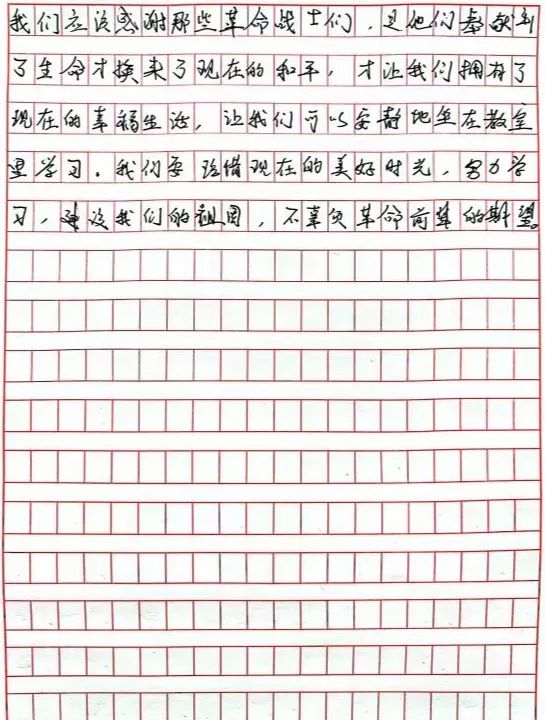 我们应该感谢那些革命战士们，是他们奉献到
了生命才换来了现在的和平，才让我们拥有了
现在的幸福生活，让我们可以安静地坐在教室
里学习。我们要珍惜现在的美好时光，努力学
习，建设我们的祖国，不辜负革命前辈的期望。